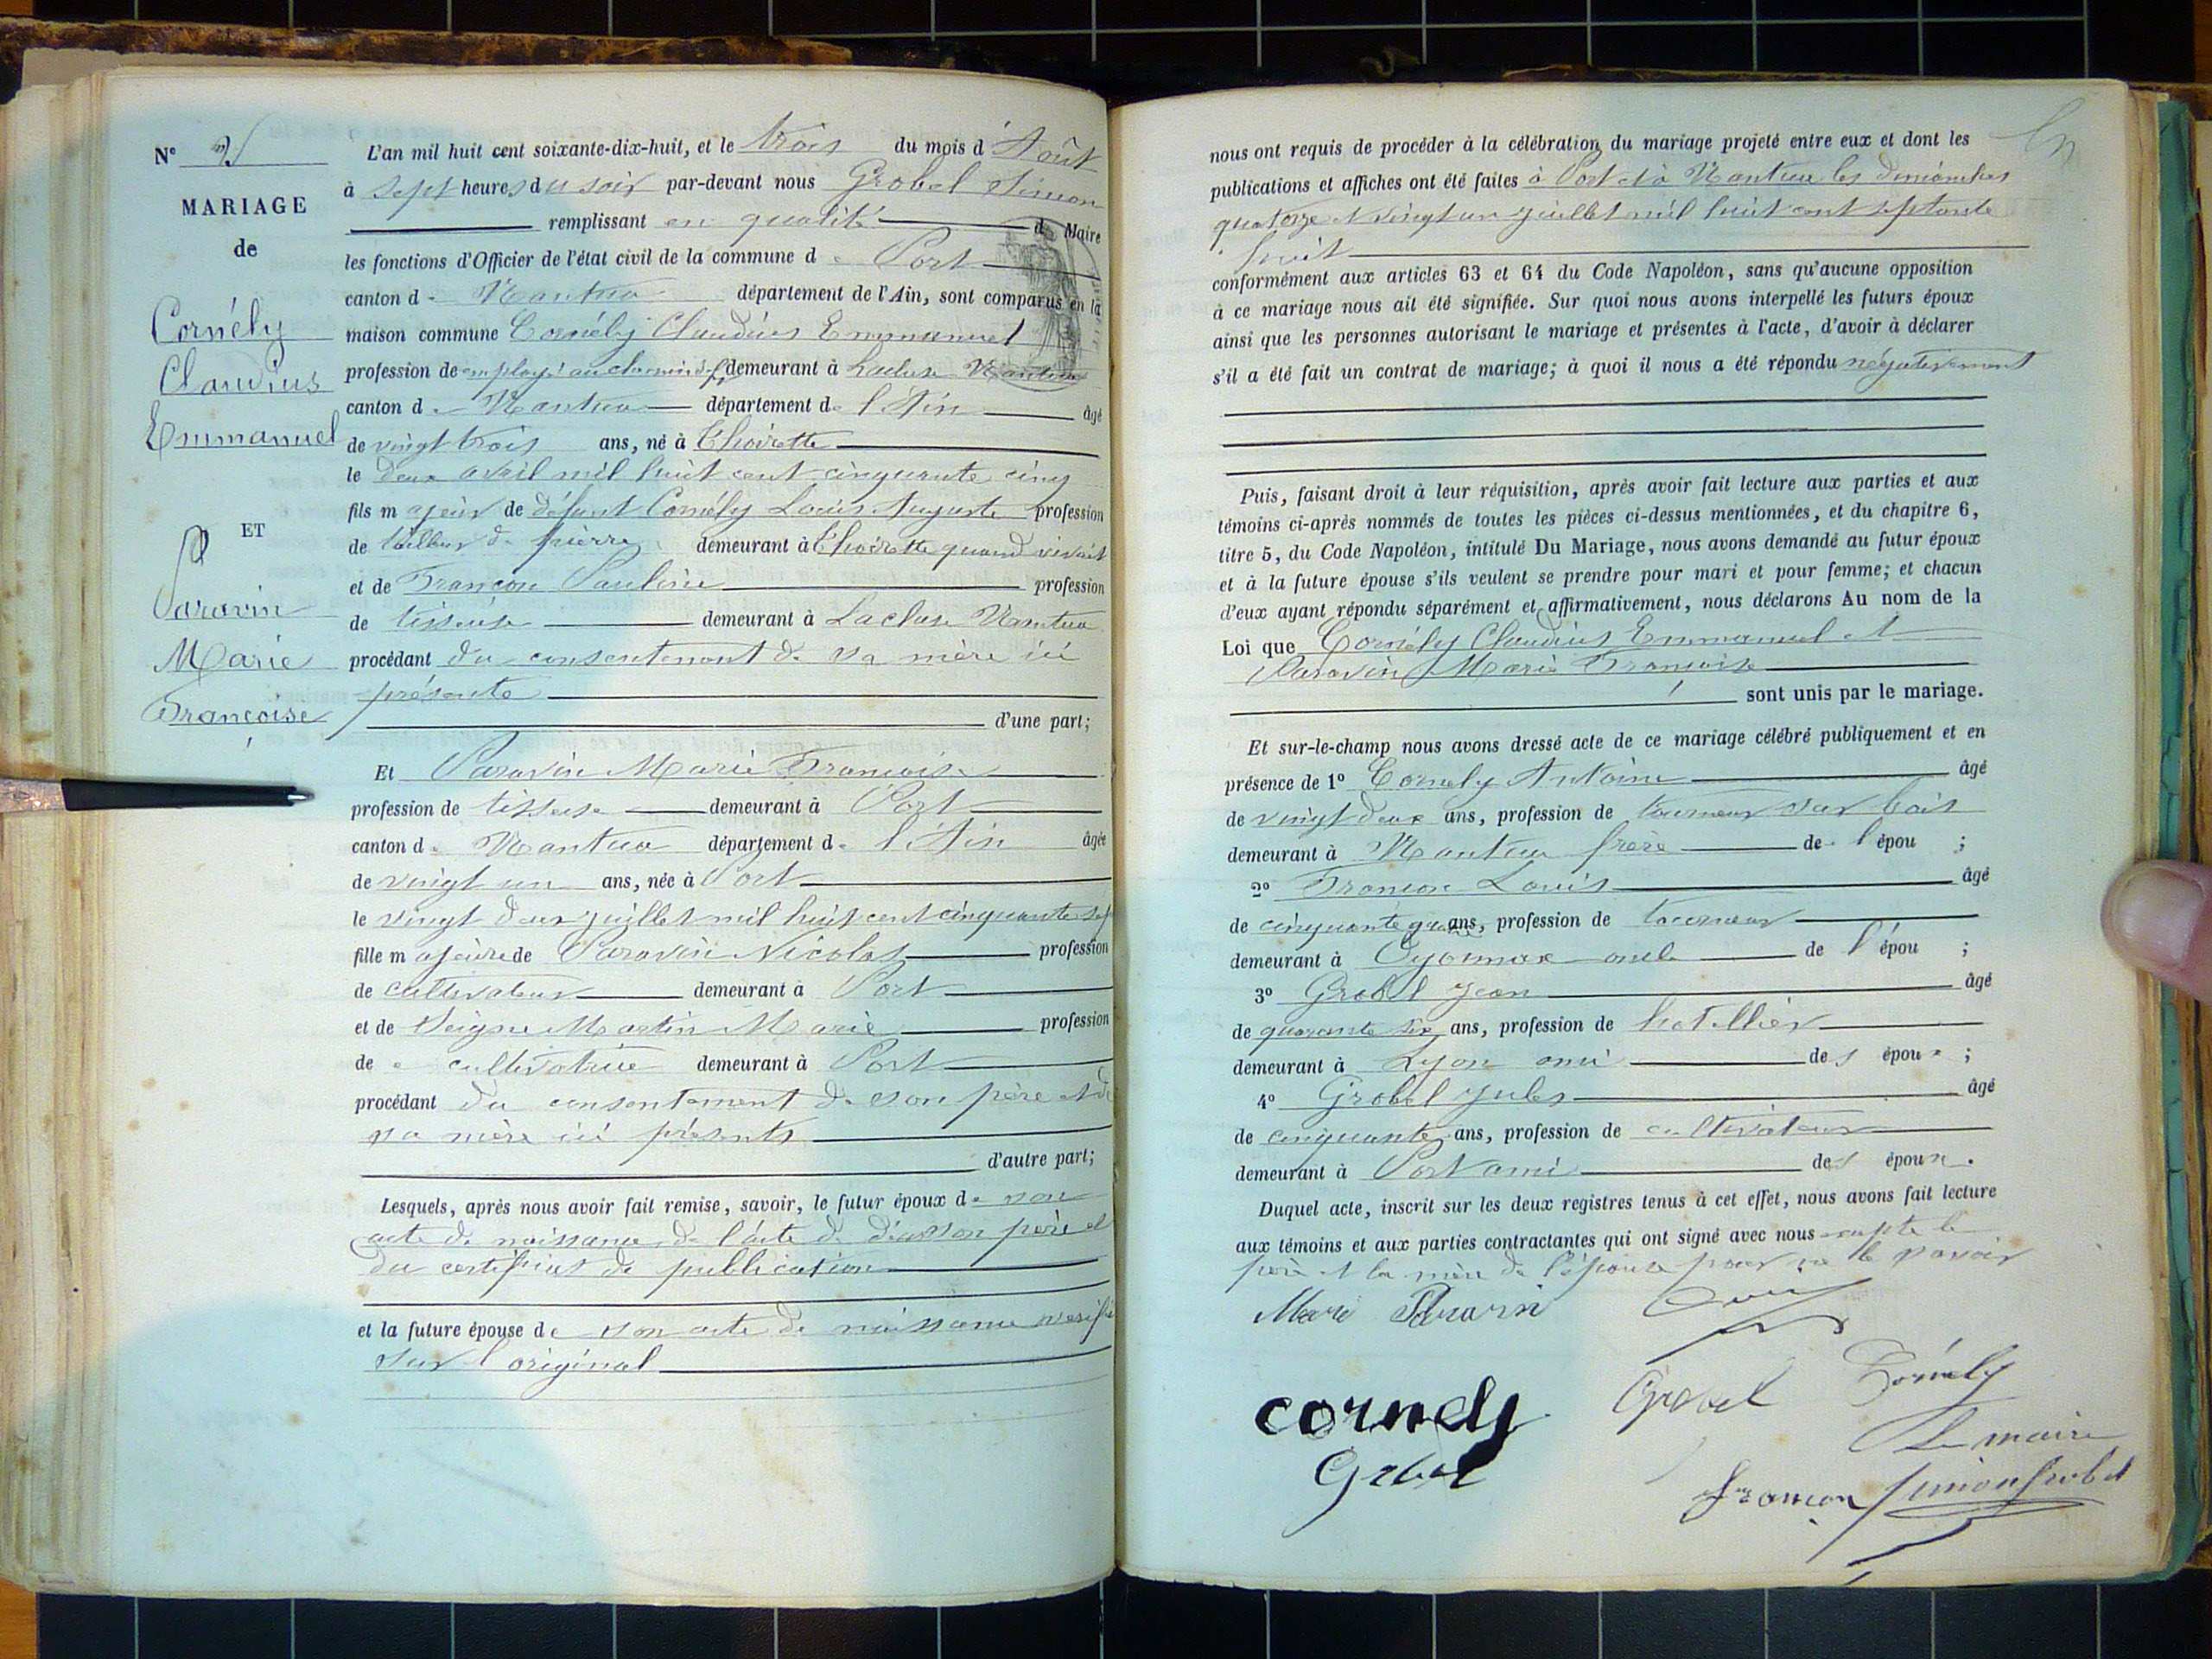 N°
MARIAGE
de
Cornély
Claudius
Emmanuel
ET
Paravin
Marie
Françoise
L'an mil huit cent soixante-dix-huit, et le trois du mois d'Août
à sept heures du soir par-devant nous Grobel Simon
remplissant en qualité de Maire
les fonctions d'Officier de l'état civil de la commune de Port
canton de Nantua département de l'Ain, sont comparus en la
maison commune Cornély Claudius Emmanuel
profession de employé au chemin de f demeurant à Lacluse Nantua
canton de Nantua département de l'Ain âgé
de vingt trois ans, né à Thoirette
le deux avril mil huit cent cinquante cinq
fils majeur de défunt Cornély Louis Auguste profession
de tailleur de pierre demeurant à Thoirette quand vivait
et de Françon Pauline profession
de tisseuse demeurant à Lacluse Nantua
procédant du consentement de sa mère ici
présente
d'une part;
Et Paravin Marie Françoise
profession de tisseuse demeurant à Port
canton de Nantua département de l'Ain âgée
de vingt un ans, née à Port
le vingt deux juillet mil huit cent cinquante sept
fille majeure de Paravin Nicolas profession
de cultivateur demeurant à Port
et de Martin Marie profession
de cultivatrice demeurant à Port
procédant du consentement de son père et de
sa mère ici présents
d'autre part;
Lesquels, après nous avoir fait remise, savoir, le futur époux de son
acte de naissance de l'acte de décès son père et
du certificat de publication
et la future épouse de son acte de naissance verifié
sur l'original
nous ont requis de procéder à la célébration du mariage projeté entre eux et dont les
publications et affiches ont été faites à Port et à Nantua les dimanches
quatorze et vingt un juillet mil huit cent septante
huit
conformément aux articles 63 et 64 du Code Napoléon, sans qu'aucune opposition
à ce mariage nous ait été signifiée. Sur quoi nous avons interpellé les futurs époux
ainsi que les personnes autorisant le mariage et présentes à l'acte, d'avoir à déclarer
s'il a été fait un contrat de mariage; à quoi il nous a été répondu négativement
Puis, faisant droit à leur réquisition, après avoir fait lecture aux parties et aux
témoins ci-après nommés de toutes les pièces ci-dessus mentionnées, et du chapitre 6,
titre 5, du Code Napoléon, intitulé Du Mariage, nous avons demandé au futur époux
et à la future épouse s'ils veulent se prendre pour mari et pour femme; et chacun
d'eux ayant répondu séparément et affirmativement, nous déclarons Au nom de la
Loi que Cornély Claudius Emmanuel et
Paravin Marie Françoise
sont unis par le mariage.
Et sur-le-champ nous avons dressé acte de ce mariage célébré publiquement et en
présence de 1° Cornely Antoine âgé
de vingt deux ans, profession de tourneur sur bois
demeurant à Nantua frère de l'épou ;
2° Françon Louis âgé
de cinquante quatre ans, profession de tourneur
demeurant à Oyonnax oncle de l'épou ;
3° Grobel Jean âgé
de quarante six ans, profession de hotellier
demeurant à Lyon ami des époux ;
4° Grobel Jules âgé
de cinquante ans, profession de cultivateur
demeurant à Port ami des époux.
Duquel acte, inscrit sur les deux registres tenus à cet effet, nous avons fait lecture
aux témoins et aux parties contractantes qui ont signé avec nous excepté le
père et la mère de l'épouse pour ne le savoir
Marie Paravin
Grobel Cornély
cornely
Le maire
Grobel
françon Simon Grobel